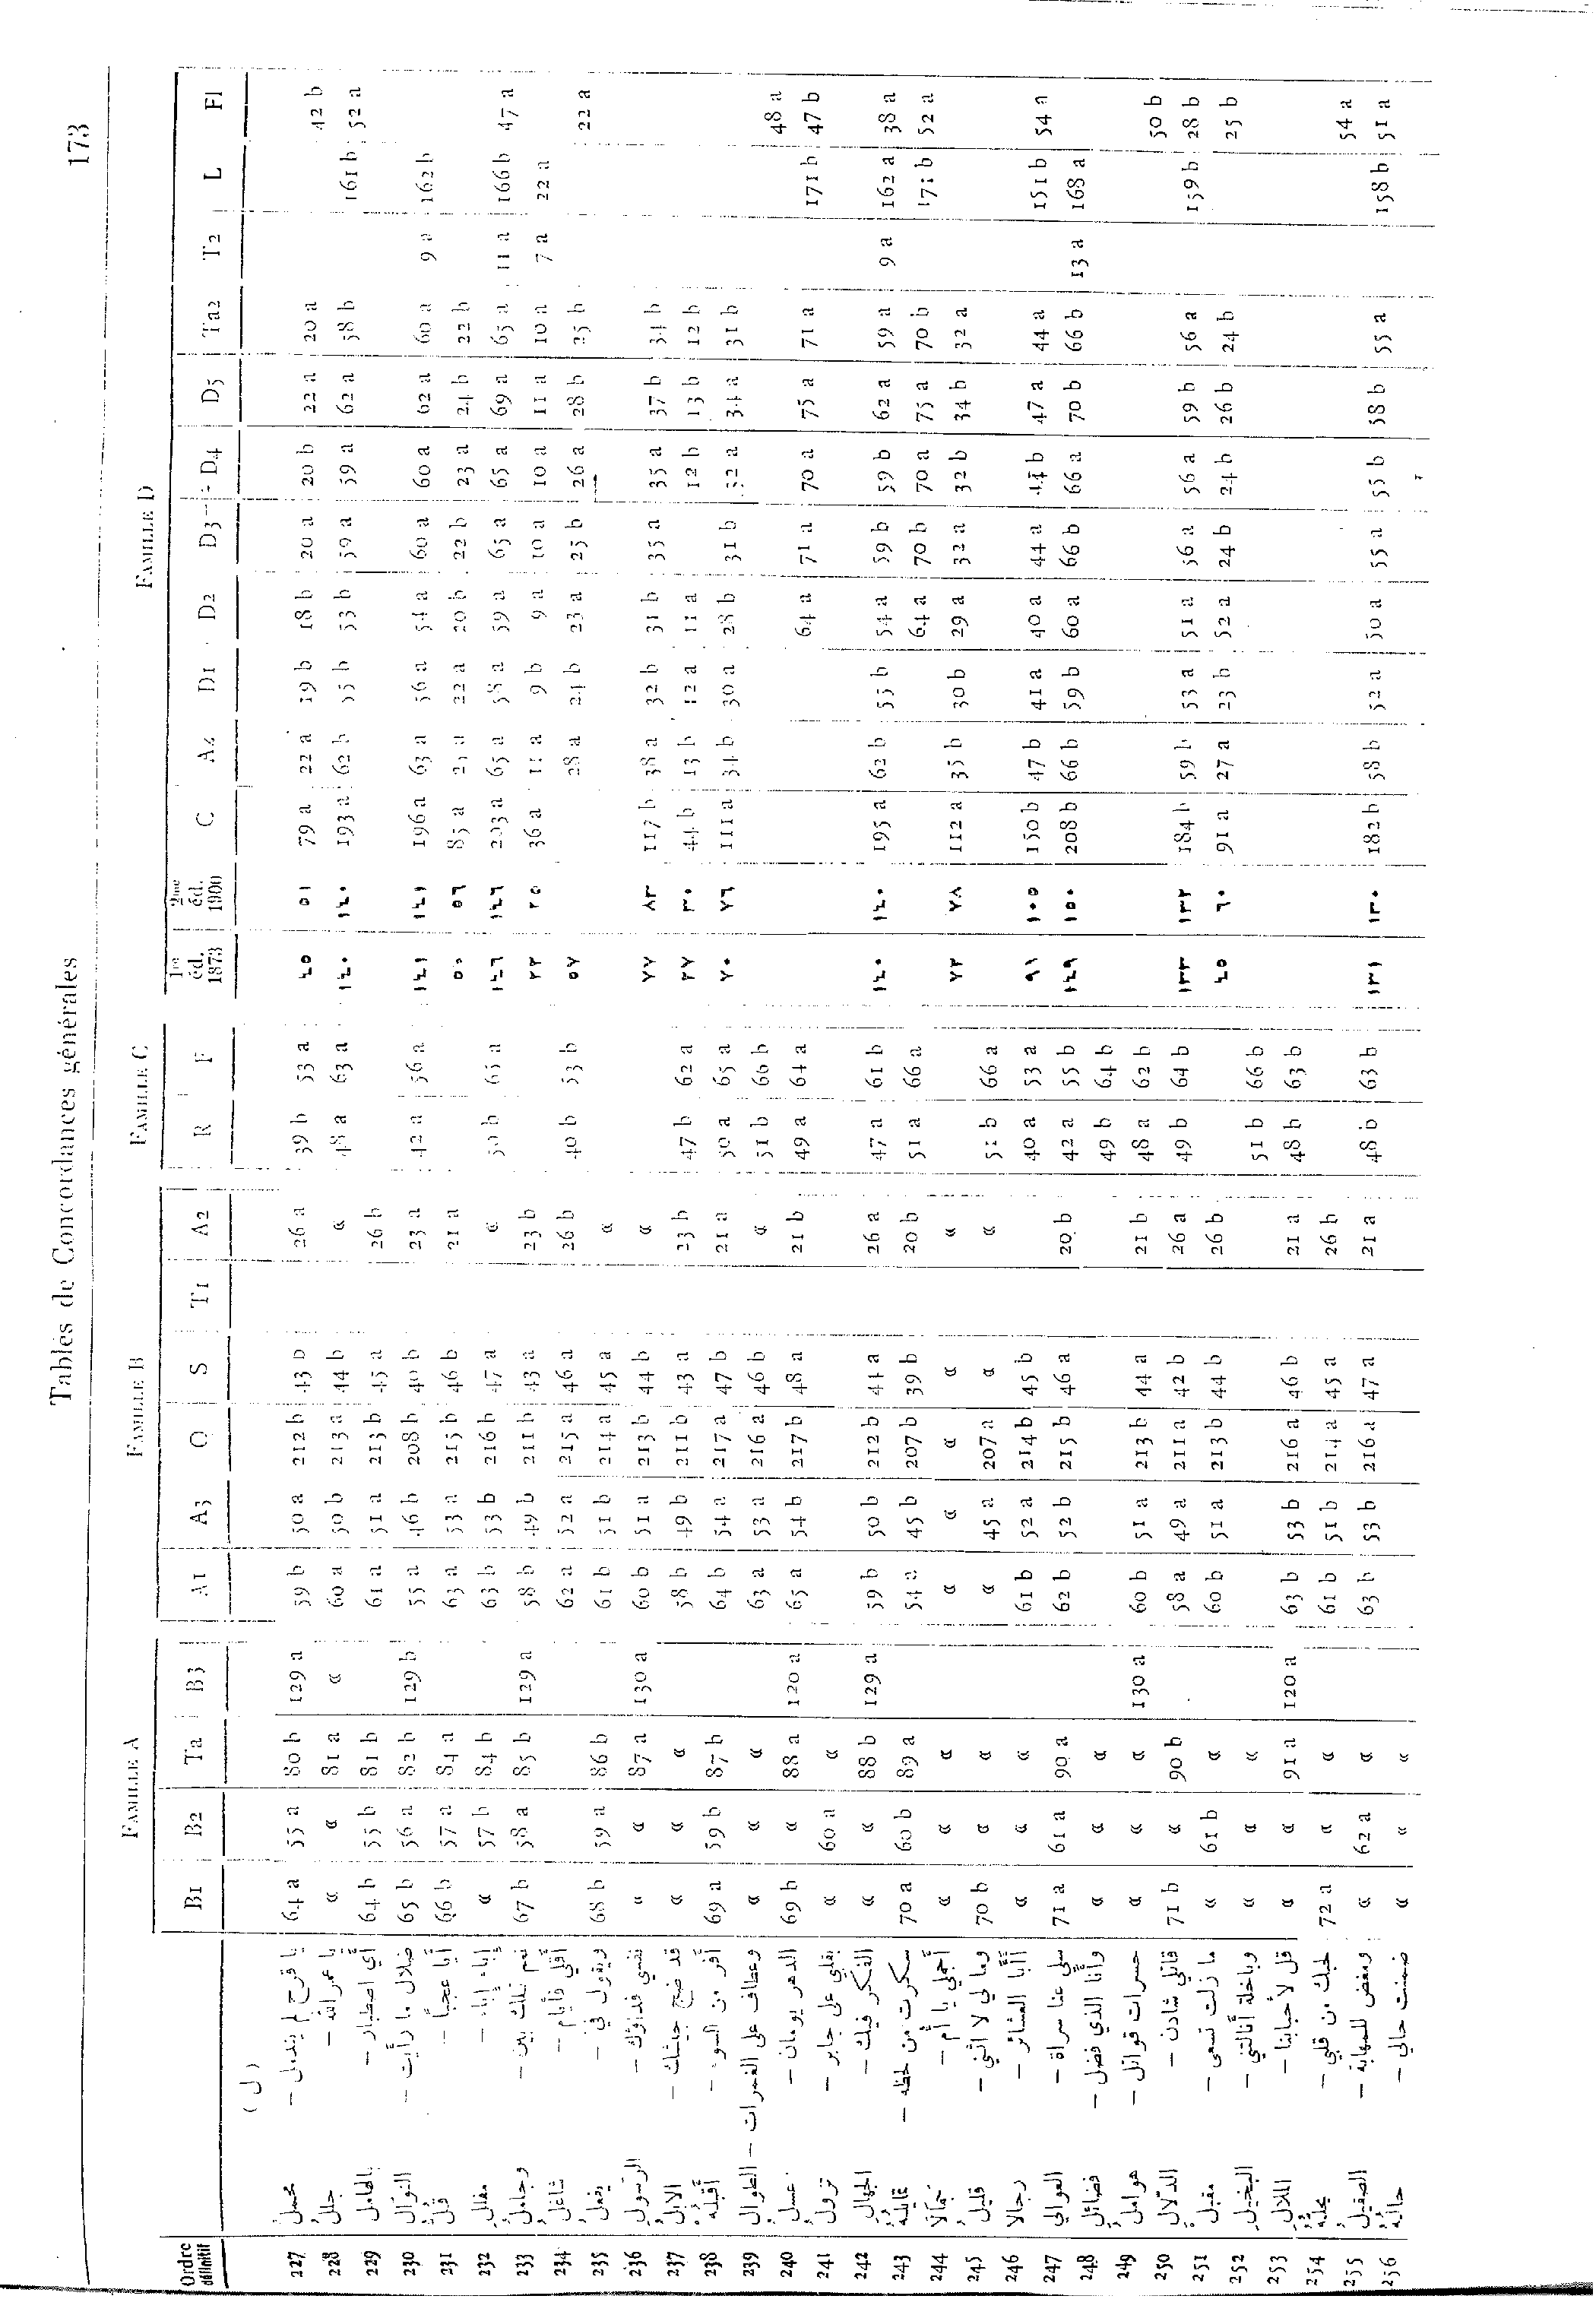 Tables de Concordances générales 173
FAMILLE A FAMILLE B FAMILLE C FAMILLE D
Ordre définitif B1 B2 Ta B3 A1 A3 O S T1 A2 R F 1re éd. 1873 2me éd. 1900 C A4 D1 D2 D3 D4 D5 Ta2 T2 L Fl
( ل )
227 محملُ يا قرح لم يندمل – 64 a 55 a 80 b 129 a 59 b 50 a 212 b 43 b 26 a 39 b 53 a ٤٥ ٥١ 79 a 22 a 19 b 18 b 20 a 20 b 22 a 20 a 42 b
228 جللُ يا عمر الله – « « 81 a « 60 a 50 b 213 a 44 b « 48 a 63 a ١٤٠ ١٤٠ 193 a 62 b 55 b 53 b 59 a 59 a 62 a 58 b 161 b 52 a
229 بالحاملِ أي اصطبار – 64 b 55 b 81 b 61 a 51 a 213 b 45 a 26 b
230 النوالُ ضلال ما رأيت – 65 b 56 a 82 b 129 b 55 a 46 b 208 b 40 b 23 a 42 a 56 a ١٤١ ١٤١ 196 a 63 a 56 a 54 a 60 a 60 a 62 a 60 a 9 a 162 b
231 قتلُ أيا عجباً – 66 b 57 a 84 a 63 a 53 a 215 b 46 b 21 a ٥٠ ٥٦ 85 a 22 a 20 b 22 b 23 a 24 b 22 b
232 مقفلِ إباء إباء – « 57 b 84 b 63 b 53 b 216 b 47 a « 50 b 65 a ١٤٦ ١٤٦ 203 a 65 a 58 a 59 a 65 a 65 a 69 a 65 a 11 a 166 b 47 a
233 وجاملُ نعم تلك بين – 67 b 58 a 85 b 129 a 58 b 49 b 211 b 43 a 23 b ٢٣ ٢٥ 36 a 11 a 9 b 9 a 10 a 10 a 11 a 10 a 7 a 22 a
234 شاغلُ أقلي فأيام – 62 a 52 a 215 a 46 a 26 b 40 b 53 b ٥٧ 28 a 24 b 23 a 25 b 26 a 28 b 25 b 22 a
235 يفعلُ ويقول في – 68 b 59 a 86 b 61 b 51 b 214 a 45 a «
236 الرسولِ نفسي فداؤك – « « 87 a 130 a 60 b 51 a 213 b 44 b « ٧٧ ٨٣ 117 b 38 a 32 b 31 b 35 a 35 a 37 b 34 b
237 الابلُ قد ضج جيشك – « « « 58 b 49 b 211 b 43 a 23 b 47 b 62 a ٢٧ ٣٠ 44 b 13 b 12 a 11 a 12 b 13 b 12 b
238 أقبلهُ أفر من السوء – 69 a 59 b 87 b 64 b 54 a 217 a 47 b 21 a 50 a 65 a ٧٠ ٧٦ 111 a 34 b 30 a 28 b 31 b 32 a 34 a 31 b
239 الطوالِ وعطاف على الغمرات – « « « 63 a 53 a 216 a 46 b « 51 b 66 b 48 a
240 عسلُ الدهر يومان – 69 b « 88 a 120 a 65 a 54 b 217 b 48 a 21 b 49 a 64 a 64 a 71 a 70 a 75 a 71 a 171 b 47 b
241 تزولُ بقلبي على جابر – « 60 a «
242 الجمالِ الفكر فيك – « « 88 b 129 a 59 b 50 b 212 b 44 a 26 a 47 a 61 b ١٤٠ ١٤٠ 195 a 62 b 55 b 54 a 59 b 59 b 62 a 59 a 9 a 162 a 38 a
243 سكرت من لحظه – 70 a 60 b 89 a 54 a 45 b 207 b 39 b 20 b 51 a 66 a 64 a 70 b 70 a 75 a 70 b 171 b 52 a
244 أجملي يا أم – « « « « « « « « ٧٢ ٧٨ 112 a 35 b 30 b 29 a 32 a 32 b 34 b 32 a
245 قليلُ وما لي لا اثني – 70 b « « « 45 a 207 a « « 51 b 66 a
246 رجالا أأبا العشائر – « « « 61 b 52 a 214 b 45 b 40 a 53 a ٩١ ١٠٥ 150 b 47 b 41 a 40 a 44 a 44 b 47 a 44 a 151 b 54 a
247 العوالي سلي عنا سراة – 71 a 61 a 90 a 62 b 52 b 215 b 46 a 20 b 42 a 55 b ١٤٩ ١٥٠ 208 b 66 b 59 b 60 a 66 b 66 a 70 b 66 b 13 a 168 a
248 فضائلي وأنا الذي فضل – « « « 49 b 64 b
249 هواملُ حسرات قواتل – « « « 130 a 60 b 51 a 213 b 44 a 21 b 48 a 62 b 50 b
250 الدلالِ قاتلي شادن – 71 b « 90 b 58 a 49 a 211 a 42 b 26 a 49 b 64 b ١٣٣ ١٣٢ 184 b 59 b 53 a 51 a 56 a 56 a 59 b 56 a 159 b 28 b
251 مقبل ما زلت تسعى – « 61 b « 60 b 51 a 213 b 44 b 26 b ٤٥ ٦٠ 91 a 27 a 23 b 52 a 24 b 24 b 26 b 24 b 25 b
252 البخيلِ وباخلة أنالتني – « « « 51 b 66 b
253 الملالِ قل لأحبابنا – « « 91 a 120 a 63 b 53 b 216 a 46 b 21 a 48 b 63 b
254 محلهُ لحبك من قلبي – 72 a « « 61 b 51 b 214 a 45 a 26 b 54 a
255 الصقيلُ وبعض للمهابة – « 62 a « 63 b 53 b 216 a 47 a 21 a 48 b 63 b ١٣١ ١٣٠ 182 b 58 b 52 a 50 a 55 a 55 b 58 b 55 a 158 b 51 a
256 حالهُ ضمنت حالي – « « «